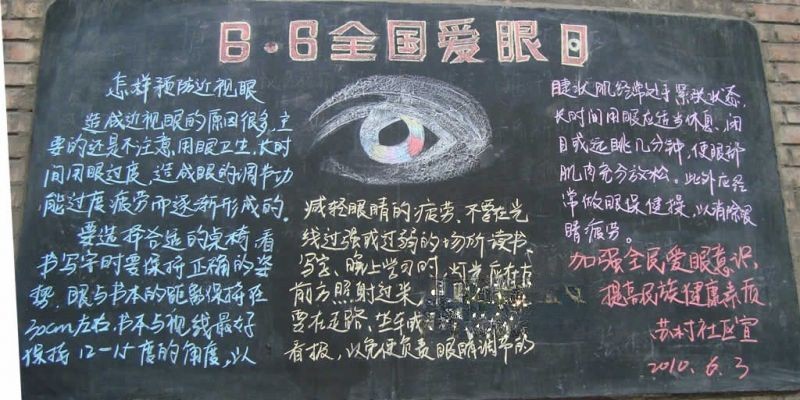 6·6全国爱眼日
怎样预防近视眼
造成近视眼的原因很多,主
要的还是不注意用眼卫生,长时
间用眼过度,造成眼的调节功
能过度疲劳而逐渐形成的。
要选择合适的桌椅看
书写字时要保持正确的姿
势,眼与书本的距离保持在
30cm左右,书本与视线最好
保持12—15度的角度,以
减轻眼睛的疲劳、不要在光
线过强或过弱的场所读书、
写字、晚上学习时,灯光应在左
前方照射过来
要在走路、坐车或
看报,以免使负责眼睛调节的
睫状肌经常处于紧张状态,
长时间用眼应适当休息、闭
目或远眺几分钟,使眼部
肌肉充分放松。此外应经
常做眼保健操,以消除眼
睛疲劳。
加强全民爱眼意识
提高民族健康素质
苏村社区宣
2010.6.3